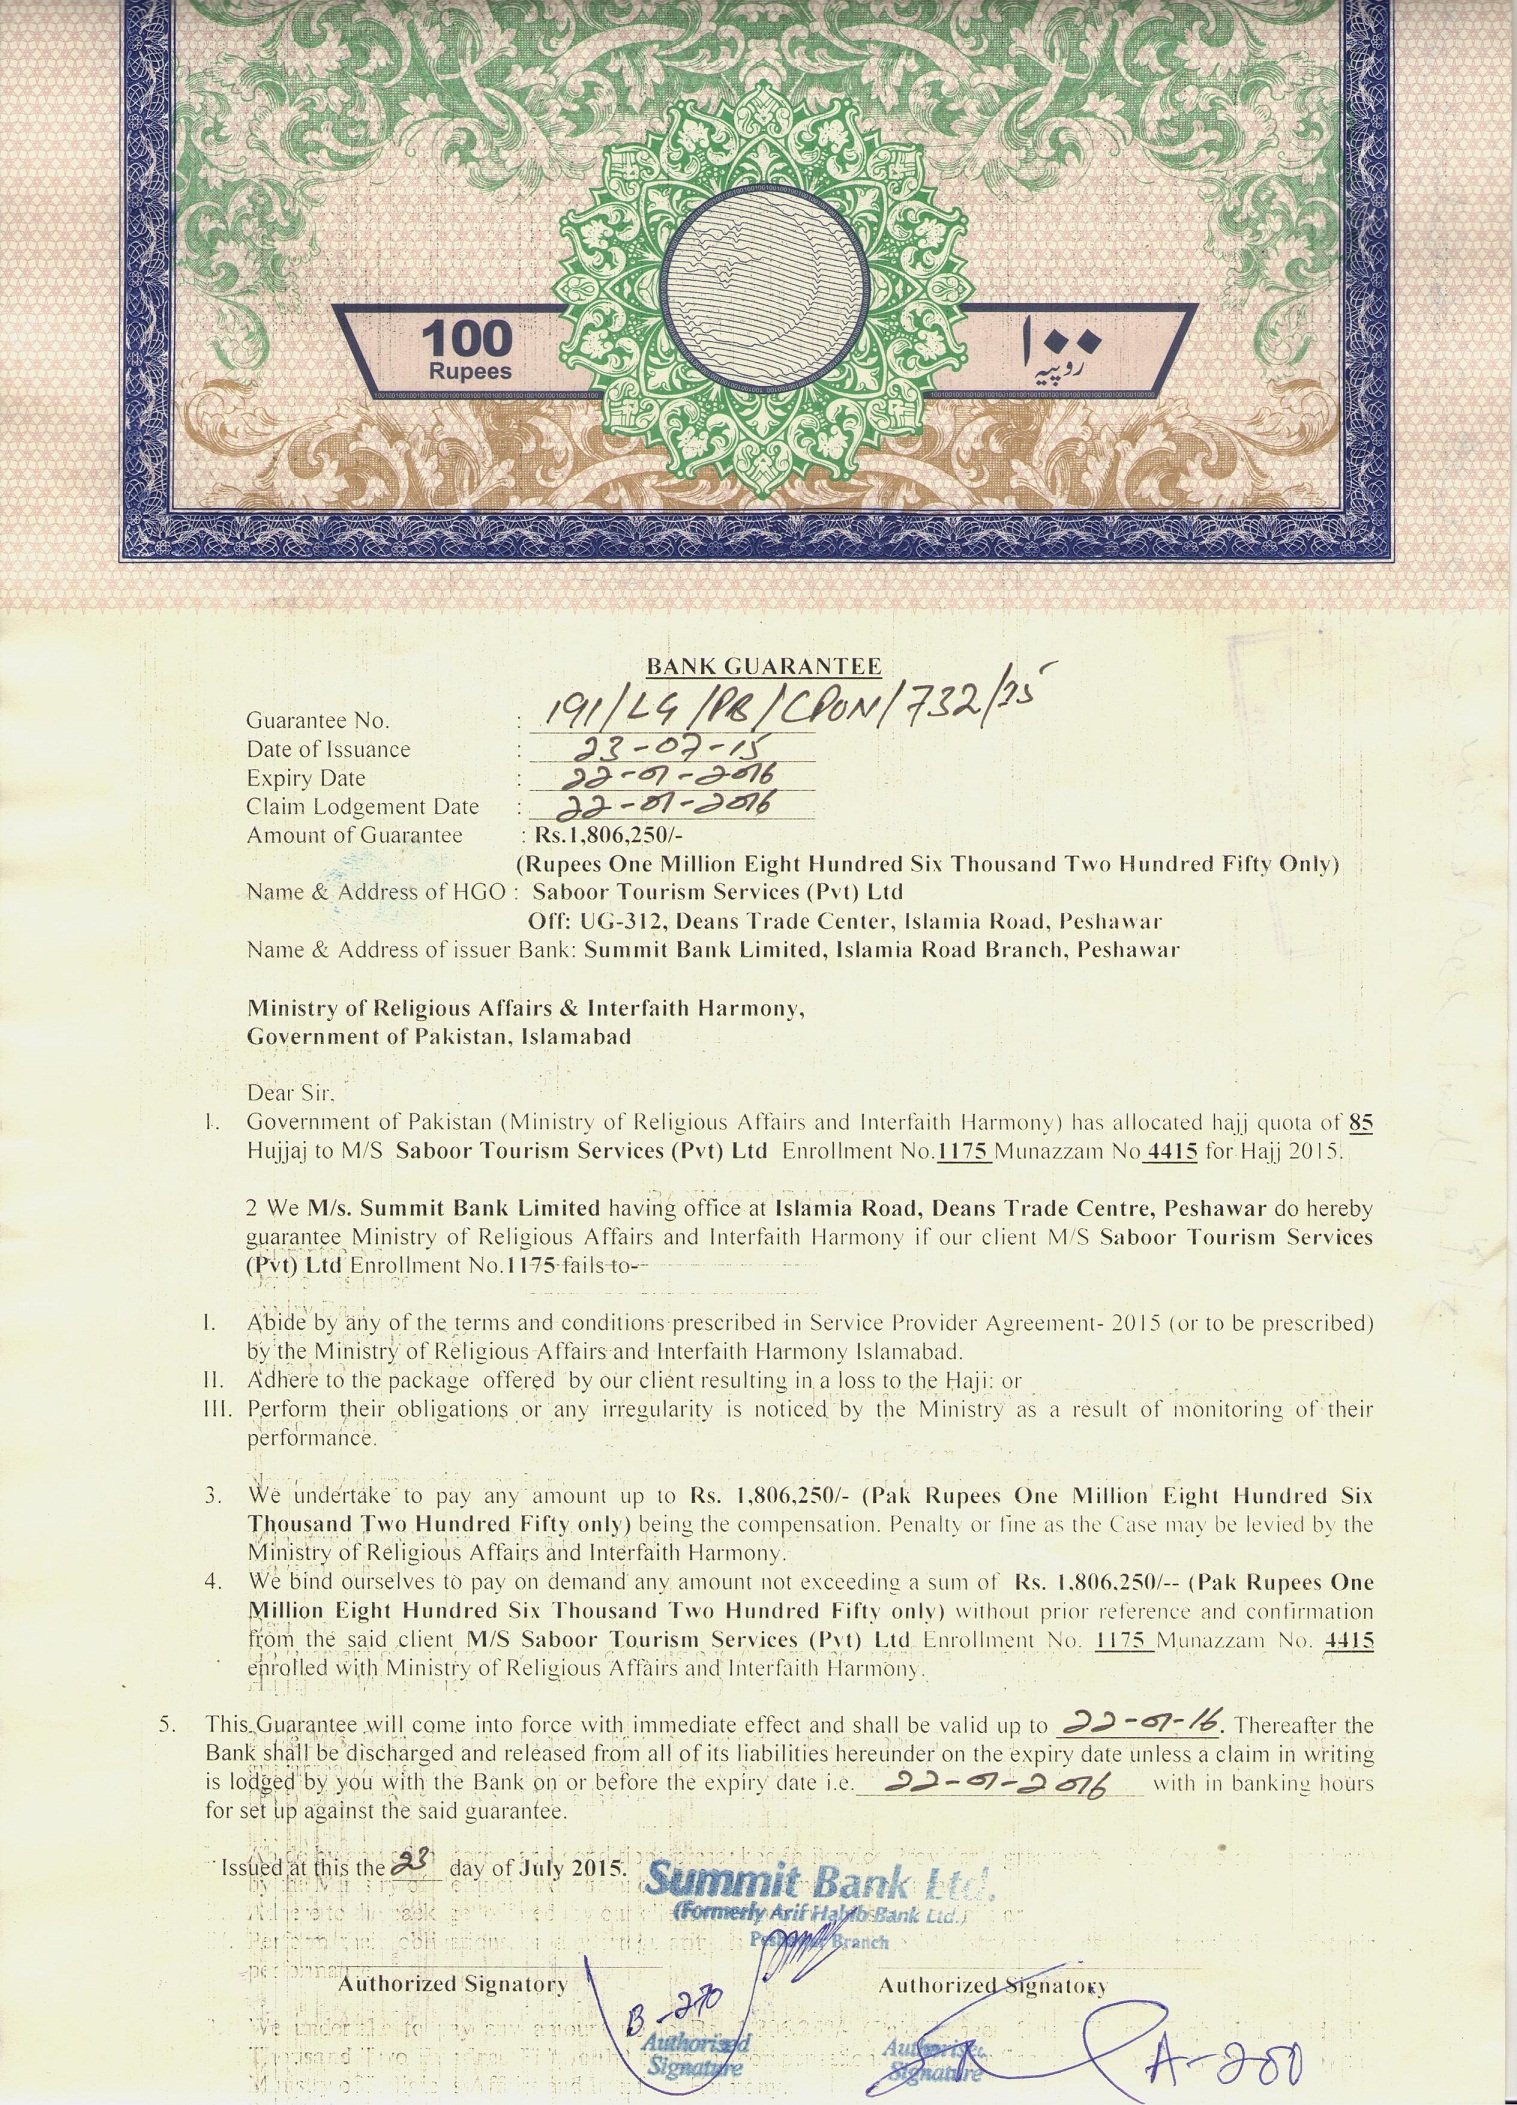 100
Rupees
۱۰۰
روپیہ
BANK GUARANTEE
Guarantee No. : 191/LG/PB/CPON/732/15
Date of Issuance : 23-07-15
Expiry Date : 22-01-2016
Claim Lodgement Date : 22-01-2016
Amount of Guarantee : Rs.1,806,250/-
(Rupees One Million Eight Hundred Six Thousand Two Hundred Fifty Only)
Name & Address of HGO : Saboor Tourism Services (Pvt) Ltd
Off: UG-312, Deans Trade Center, Islamia Road, Peshawar
Name & Address of issuer Bank: Summit Bank Limited, Islamia Road Branch, Peshawar
Ministry of Religious Affairs & Interfaith Harmony,
Government of Pakistan, Islamabad
Dear Sir,
1. Government of Pakistan (Ministry of Religious Affairs and Interfaith Harmony) has allocated hajj quota of 85
Hujjaj to M/S Saboor Tourism Services (Pvt) Ltd Enrollment No.1175 Munazzam No 4415 for Hajj 2015.
2 We M/s. Summit Bank Limited having office at Islamia Road, Deans Trade Centre, Peshawar do hereby
guarantee Ministry of Religious Affairs and Interfaith Harmony if our client M/S Saboor Tourism Services
(Pvt) Ltd Enrollment No.1175 fails to--
I. Abide by any of the terms and conditions prescribed in Service Provider Agreement- 2015 (or to be prescribed)
by the Ministry of Religious Affairs and Interfaith Harmony Islamabad.
II. Adhere to the package offered by our client resulting in a loss to the Haji: or
III. Perform their obligations or any irregularity is noticed by the Ministry as a result of monitoring of their
performance.
3. We undertake to pay any amount up to Rs. 1,806,250/- (Pak Rupees One Million Eight Hundred Six
Thousand Two Hundred Fifty only) being the compensation. Penalty or fine as the Case may be levied by the
Ministry of Religious Affairs and Interfaith Harmony.
4. We bind ourselves to pay on demand any amount not exceeding a sum of Rs. 1,806,250/-- (Pak Rupees One
Million Eight Hundred Six Thousand Two Hundred Fifty only) without prior reference and confirmation
from the said client M/S Saboor Tourism Services (Pvt) Ltd Enrollment No. 1175 Munazzam No. 4415
enrolled with Ministry of Religious Affairs and Interfaith Harmony.
5. This Guarantee will come into force with immediate effect and shall be valid up to 22-01-16. Thereafter the
Bank shall be discharged and released from all of its liabilities hereunder on the expiry date unless a claim in writing
is lodged by you with the Bank on or before the expiry date i.e. 22-01-2016 with in banking hours
for set up against the said guarantee.
Issued at this the 23 day of July 2015.
Summit Bank Ltd.
(Formerly Arif Habib Bank Ltd.)
Peshawar Branch
Authorized Signatory Authorized Signatory
B-270
Authorised
Signature
Authorised
Signature
A-200